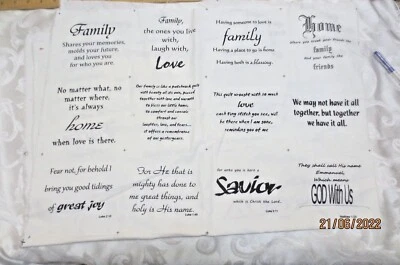 Family
Shares your memories,
molds your future,
and loves you
for who you are.
Family,
the ones you live
with,
laugh with,
Love
Having someone to love is
family
Having a place to go is home
Having both is a blessing.
Home
and your family the
friends
No matter what, no
matter where,
it's always
home
when love is there.
Our family is like a patchwork quilt
with beauty all its own, pieced
together with love and warmth
to bless our little home,
of comfort and caress
through our
laughter, love, and tears...
it offers a remembrance
of our yesteryears.
This quilt wrought with so much
love
each tiny stitch you see, will
be there when I am gone,
reminding you of me
We may not have it all
together, but together
we have it all.
Fear not, for behold I
bring you good tidings
of great joy
Luke
For He that is
mighty has done to
me great things, and
holy is His name.
Luke 1:49
for unto you is born a
Savior
which is Christ the Lord.
Luke 2:11
They shall call His name
Emmanuel,
Which means
GOD With Us
21/06/2022